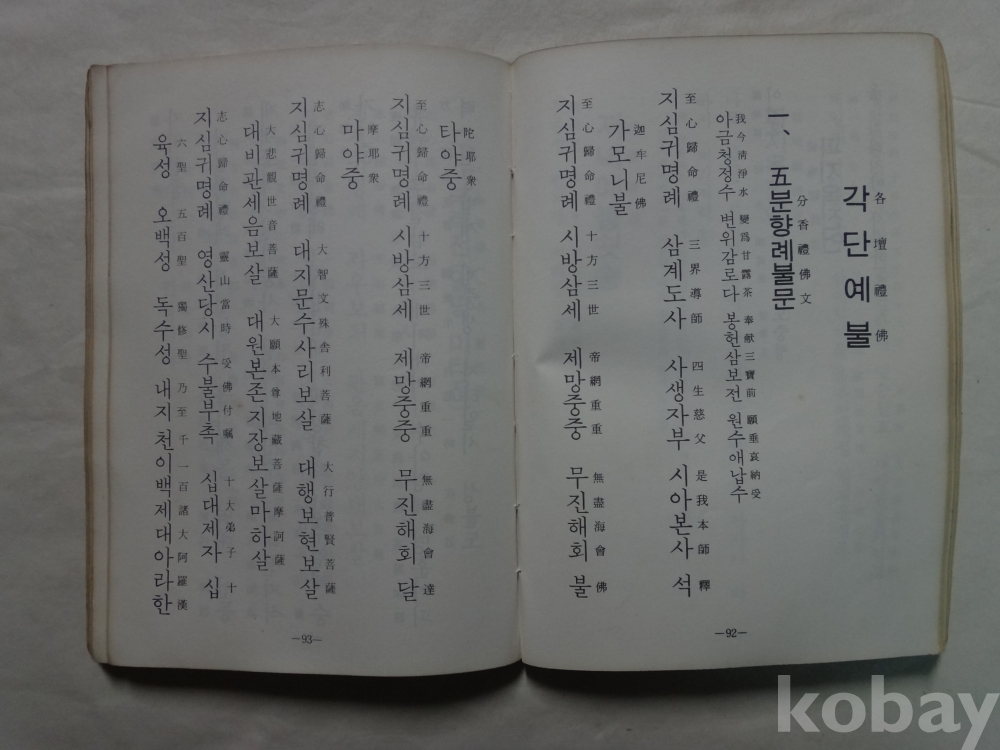 각단예불
各壇禮佛
一、 五분향례불문
分香禮佛文
아금청정수 변위감로다 봉헌삼보전 원수애납수
我今淸淨水 變爲甘露茶 奉献三寶前 願垂哀納受
지심귀명례 삼계도사 사생자부 시아본사 석
至心歸命禮 三界導師 四生慈父 是我本師 釋
가모니불
迦牟尼佛
지심귀명례 시방삼세 제망중중 무진해회 불
至心歸命禮 十方三世 帝網重重 無盡海會 佛
—92—
지심귀명례 시방삼세 제망중중 무진해회 달
至心歸命禮 十方三世 帝網重重 無盡海會 達
타야중
陀耶衆
마야중
摩耶衆
지심귀명례 대지문수사리보살 대행보현보살
志心歸命禮 大智文殊舍利菩薩 大行普賢菩薩
대비관세음보살 대원본존지장보살마하살
大悲観世音菩薩 大願本尊地蔵菩薩摩訶薩
지심귀명례 영산당시 수불부촉 십대제자 십
志心歸命禮 靈山當時 受佛付囑 十大弟子 十
육성 오백성 독수성 내지 천이백제대아라한
六聖 五百聖 獨修聖 乃至 千一百諸大阿羅漢
—93—
kobay